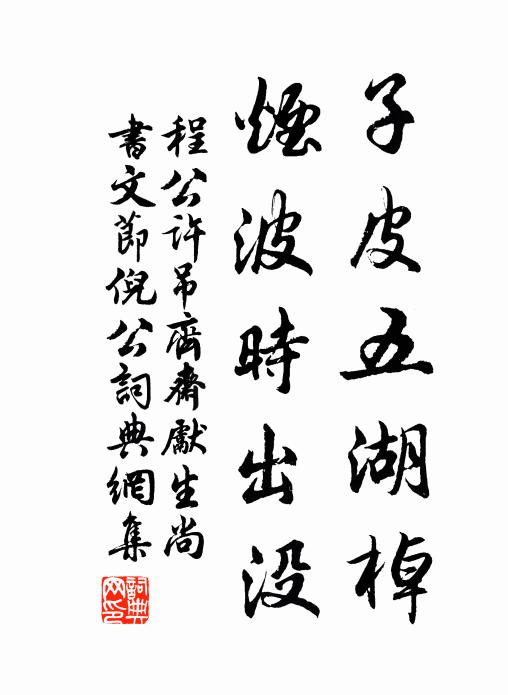 子皮五湖棹
煙波時出没
程公許吊齊齋獻生尚
書文節倪公詞典網集
詞典网印